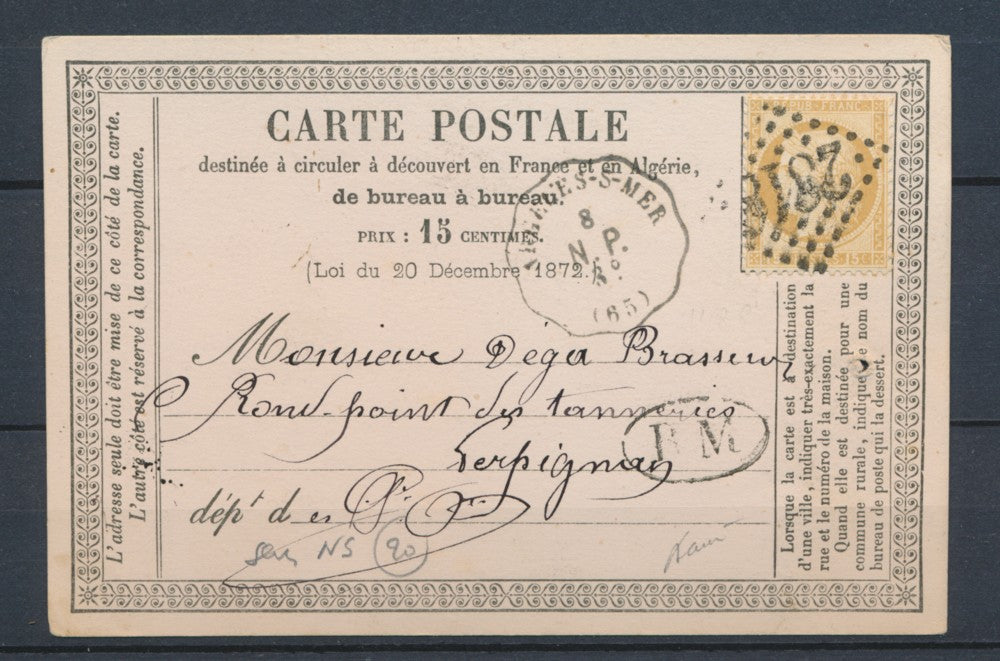 CARTE POSTALE
destinée à circuler à découvert en France et en Algérie,
de bureau à bureau.
PRIX : 15 CENTIMES.
(Loi du 20 Décembre 1872.)
L'adresse seule doit être mise de ce côté de la carte.
L'autre côté est réservé à la correspondance.
RÉPUB. FRANC.
15 C
S-MER
8
(65)
Monsieur Déga Brasseur
Rond-point des tanneries
Perpignan
BM
dépt d es P. O.
NS 20
Lorsque la carte est à destination
d'une ville, indiquer très-exactement la
rue et le numéro de la maison.
Quand elle est destinée pour une
commune rurale, indiquer le nom du
bureau de poste qui la dessert.